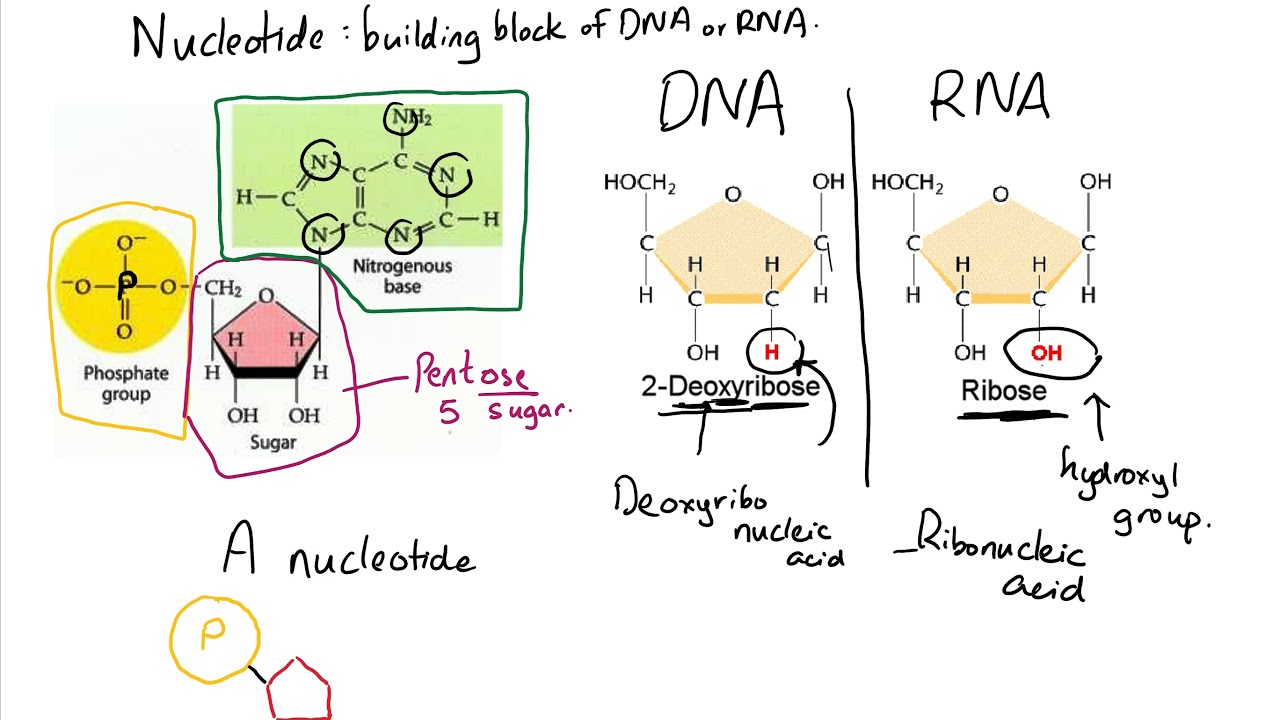 Nucleotide : building block of DNA or RNA.
DNA
RNA
NH₂
N
C
N
C
H—C
N
C
C—H
N
N
Nitrogenous
base
O⁻
⁻O—P—O—CH₂
O
O
H
H
H
H
OH
OH
Phosphate
group
Sugar
Pentose
5 sugar.
HOCH₂
O
OH
C
C
H
H
H
H
C
C
OH
H
2-Deoxyribose
HOCH₂
O
OH
C
C
H
H
H
H
C
C
OH
OH
Ribose
Deoxyribo
nucleic
acid
hydroxyl
group.
Ribonucleic
acid
A nucleotide
P